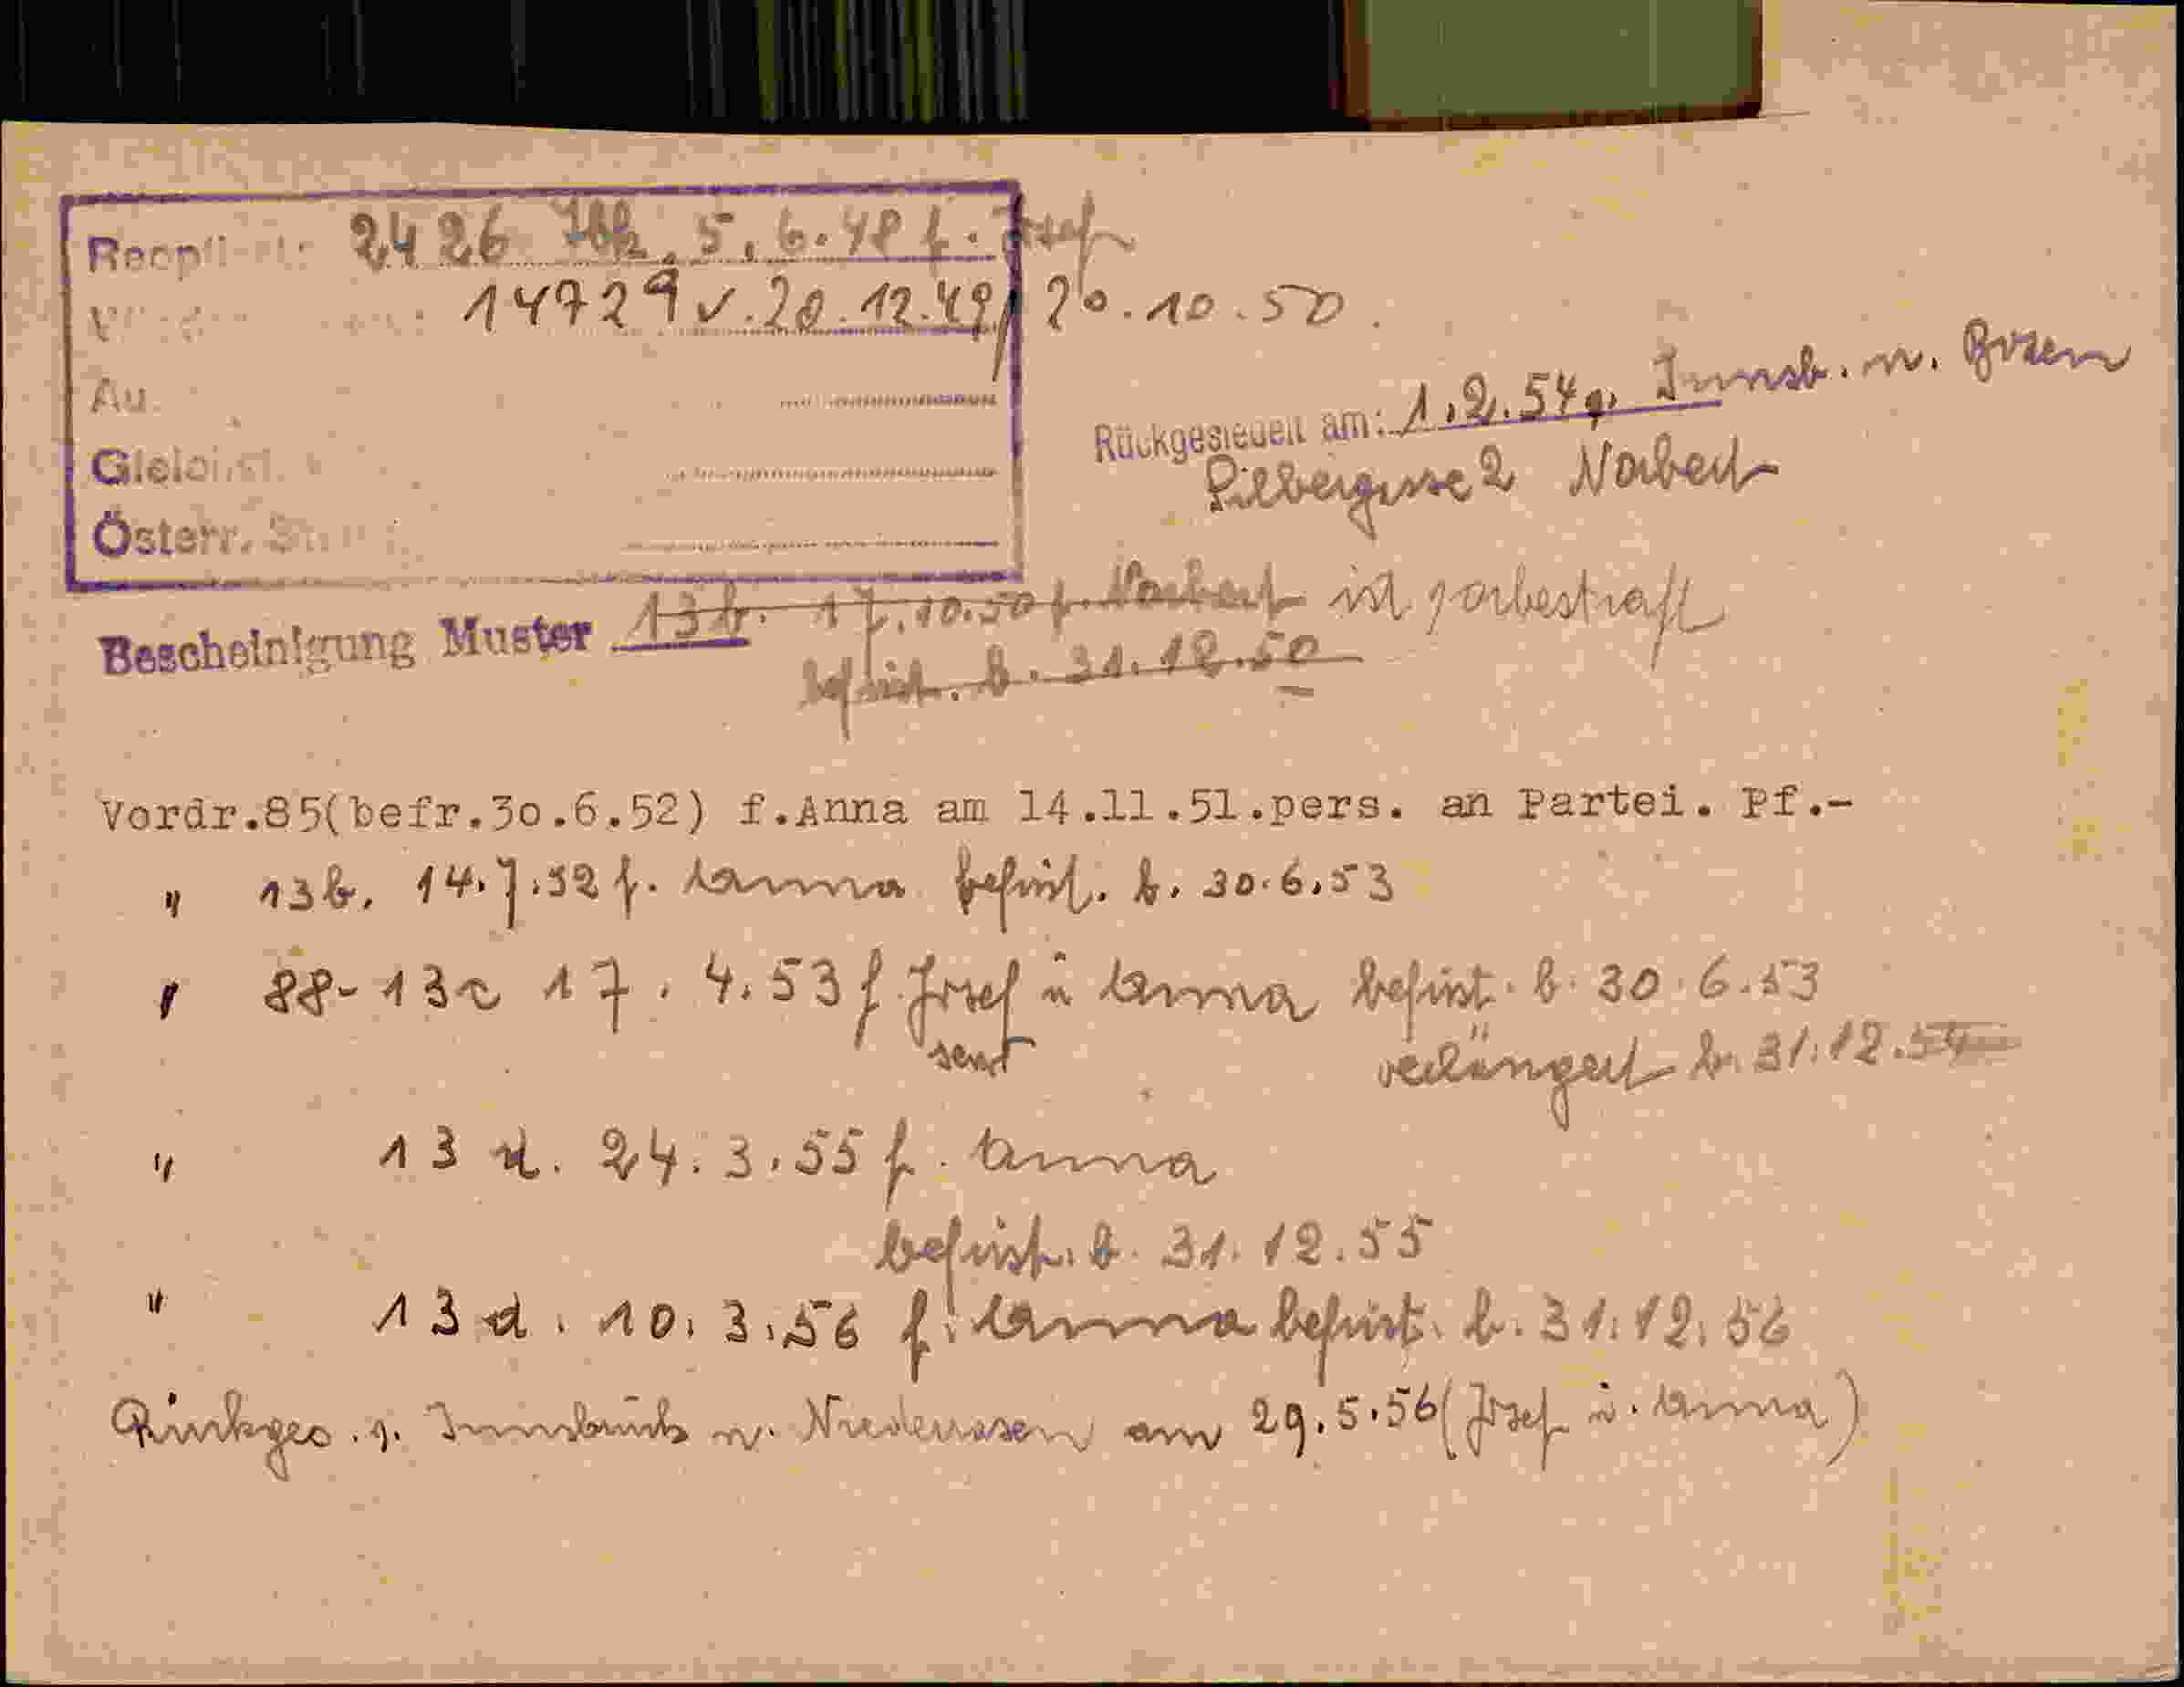 Reopt 2426 Ibk. 5.6.48 f. Josef
14729 v. 20.12.49/20.10.50.
Au
Rückgesiedelt am: 1.2.54 v. Innsb. n. Bozen
Gleich
Silbergasse 2 Norbert
Österr. St
Bescheinigung Muster 13b. 17.10.50 f. Norbert ist vorbestraft
befrist. b. 31.12.50
Vordr.85(befr.30.6.52) f.Anna am 14.11.51.pers. an Partei. Pf.-
" 13b. 14.7.52 f. Anna befrist. b. 30.6.53
" 88-13c 17.4.53 f Josef u Anna befrist. b. 30.6.53
verlängert b. 31.12.54
" 13 d. 24.3.55 f. Anna
befrist. b. 31.12.55
" 13 d. 10.3.56 f. Anna befrist. b. 31.12.56
Rückges. v. Innsbruck n. Niederrasen am 29.5.56 (Josef u. Anna)